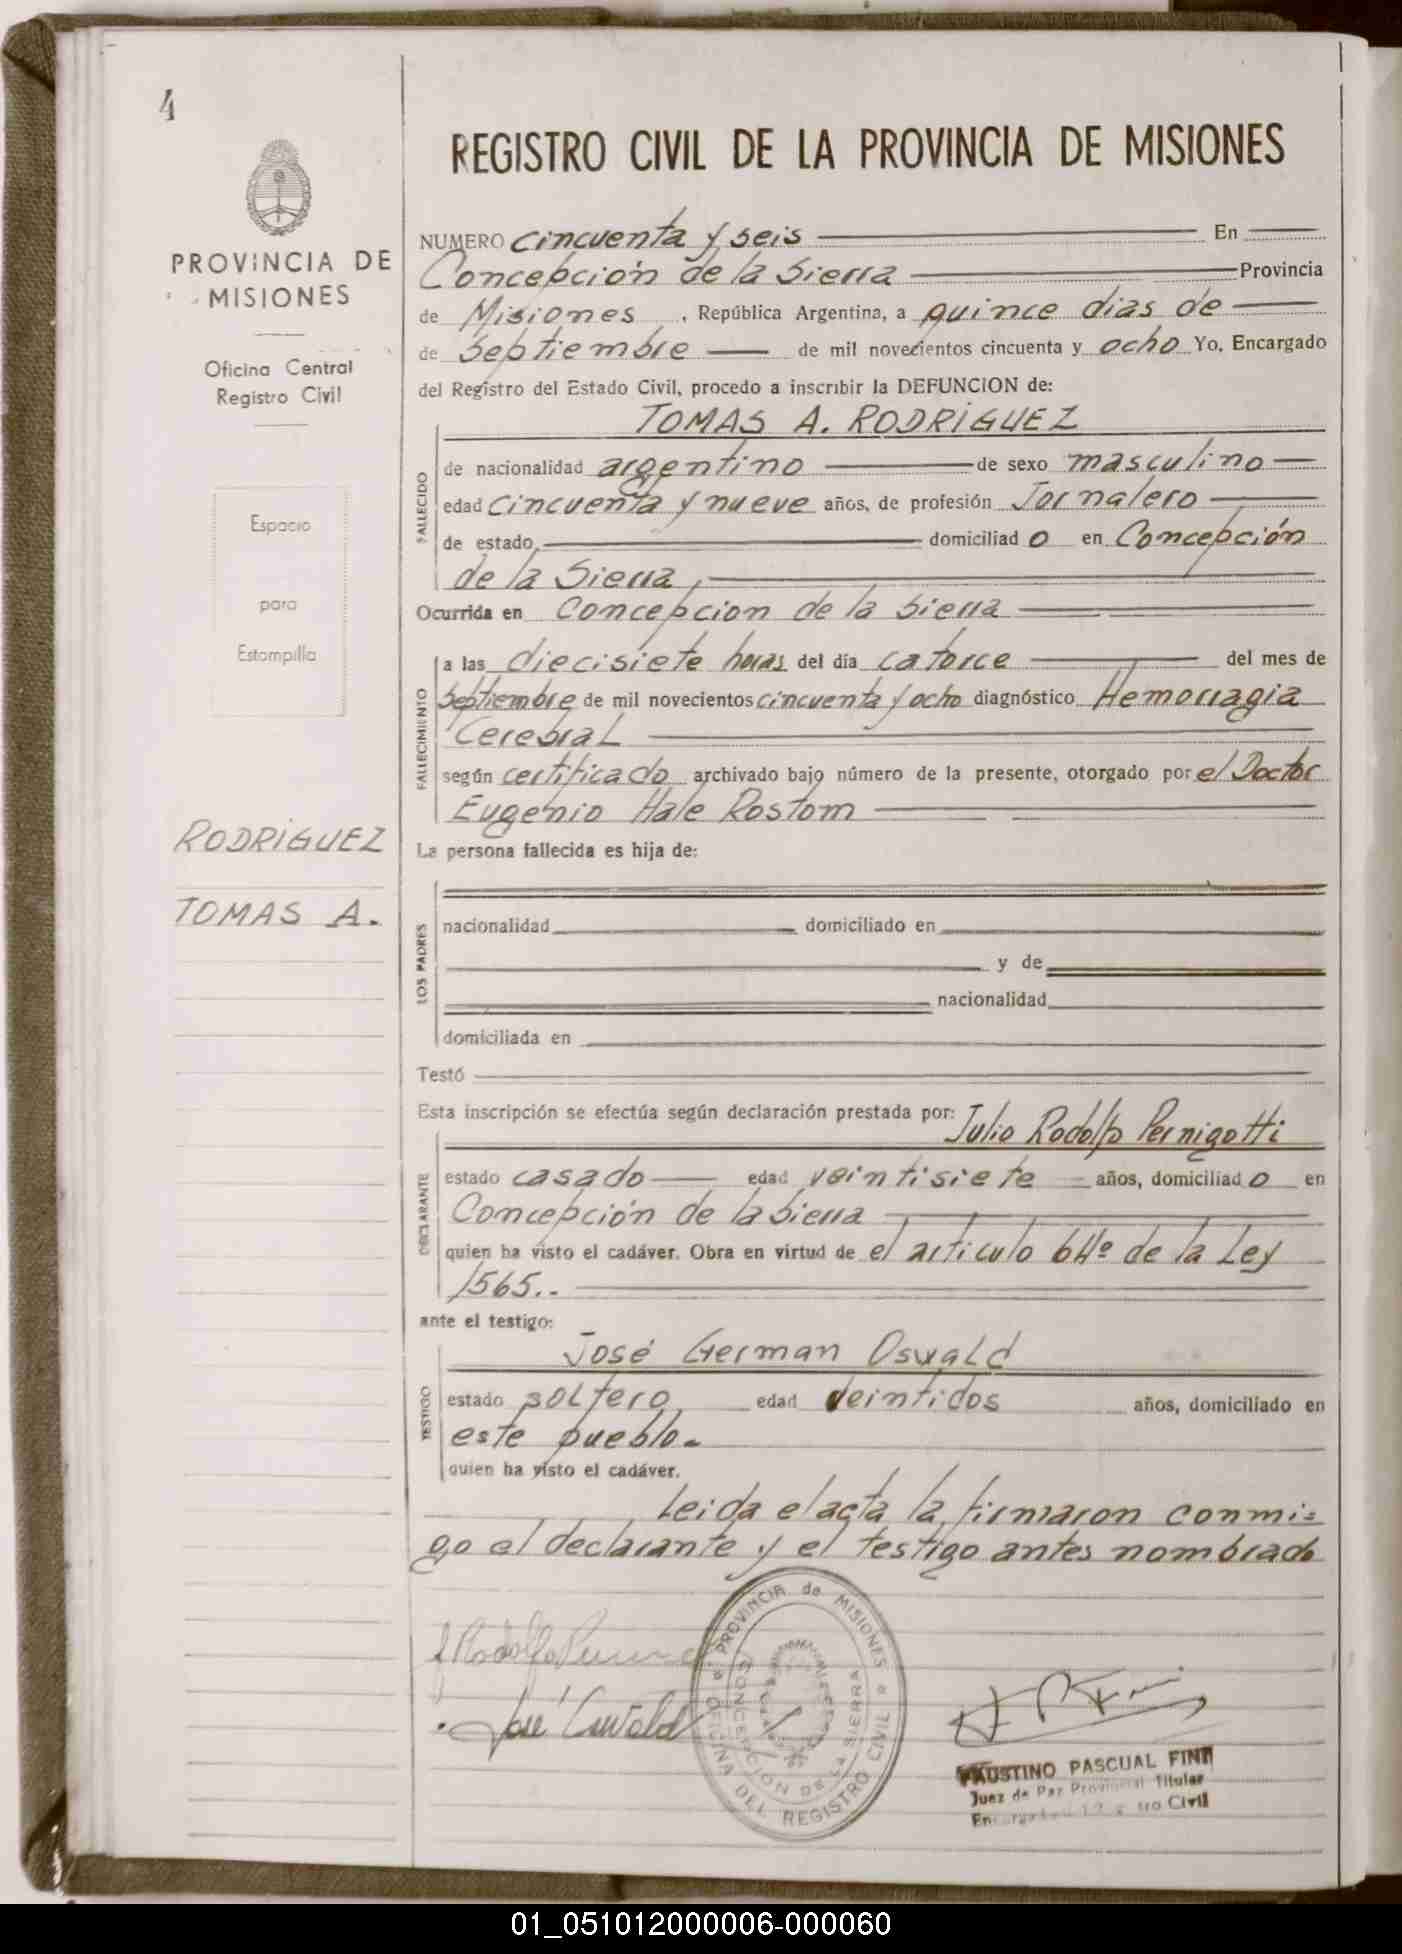 4
REGISTRO CIVIL DE LA PROVINCIA DE MISIONES
PROVINCIA DE
MISIONES
Oficina Central
Registro Civil
Espacio
para
Estampilla
RODRIGUEZ
TOMAS A.
NUMERO cincuenta y seis En
Concepción de la Sierra Provincia
de Misiones , República Argentina, a quince dias de
de Septiembre de mil novecientos cincuenta y ocho Yo, Encargado
del Registro del Estado Civil, procedo a inscribir la DEFUNCION de:
TOMAS A. RODRIGUEZ
FALLECIDO
de nacionalidad argentino de sexo masculino
edad cincuenta y nueve años, de profesión Jornalero
de estado domiciliado en Concepción
de la Sierra,
Ocurrida en Concepcion de la Sierra
FALLECIMIENTO
a las diecisiete horas del día catorce del mes de
Septiembre de mil novecientos cincuenta y ocho diagnóstico Hemorragia
Cerebral
según certificado archivado bajo número de la presente, otorgado por el Doctor
Eugenio Hale Rostom
La persona fallecida es hija de:
LOS PADRES
nacionalidad domiciliado en
y de
nacionalidad
domiciliada en
Testó
Esta inscripción se efectúa según declaración prestada por: Julio Rodolfo Pernigotti
DECLARANTE
estado casado edad veintisiete años, domiciliado en
Concepción de la Sierra
quien ha visto el cadáver. Obra en virtud de el artículo 64º de la Ley
1565..
ante el testigo:
José German Oswald
TESTIGO
estado soltero, edad veintidos años, domiciliado en
este pueblo.
quien ha visto el cadáver.
Leida el acta la firmaron conmi=
go el declarante y el testigo antes nombrado
José Oswald
PROVINCIA de MISIONES
OFICINA DEL REGISTRO CIVIL
CONCEPCION DE LA SIERRA
FAUSTINO PASCUAL FINI
Juez de Paz Provincial Titular
Encargado Registro Civil
01_051012000006-000060